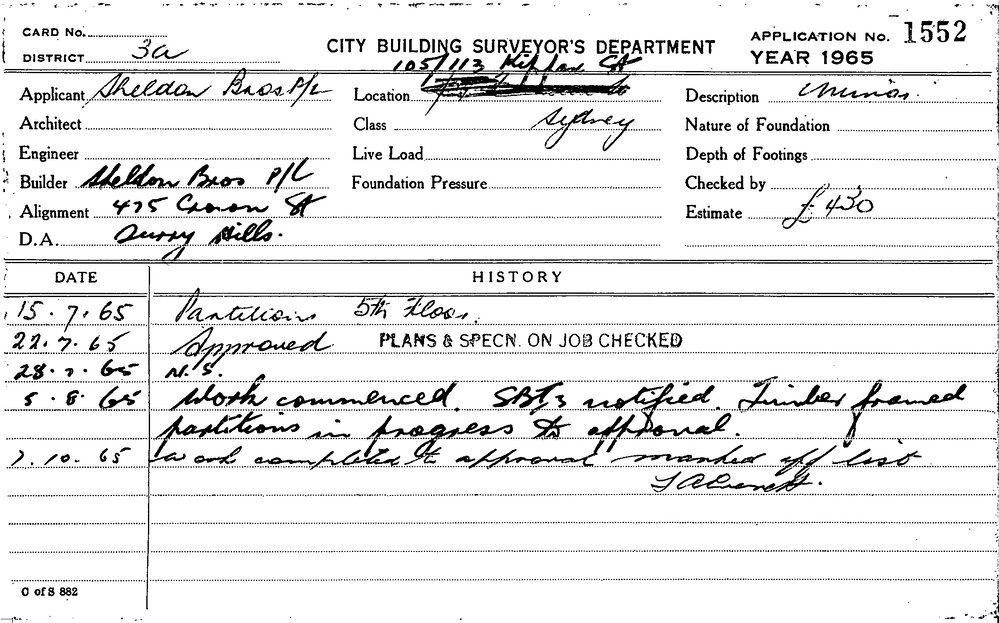 CARD No.
DISTRICT 3a
CITY BUILDING SURVEYOR'S DEPARTMENT
APPLICATION No. 1552
YEAR 1965
105/113 Kippax St
Applicant Sheldon Bros P/L
Location
Description Minor
Architect
Class Sydney
Nature of Foundation
Engineer
Live Load
Depth of Footings
Builder Sheldon Bros P/L
Foundation Pressure
Checked by
Alignment 475 Crown St
Estimate £430
D.A. Surry Hills.
DATE HISTORY
15.7.65 Partitions 5th Floor.
22.7.65 Approved PLANS & SPECN. ON JOB CHECKED
28.7.65 N.S.
5.8.65 Work commenced. notified. Timber framed
partitions in progress to approval.
7.10.65 Work completed to approval marked off list
C of S 882